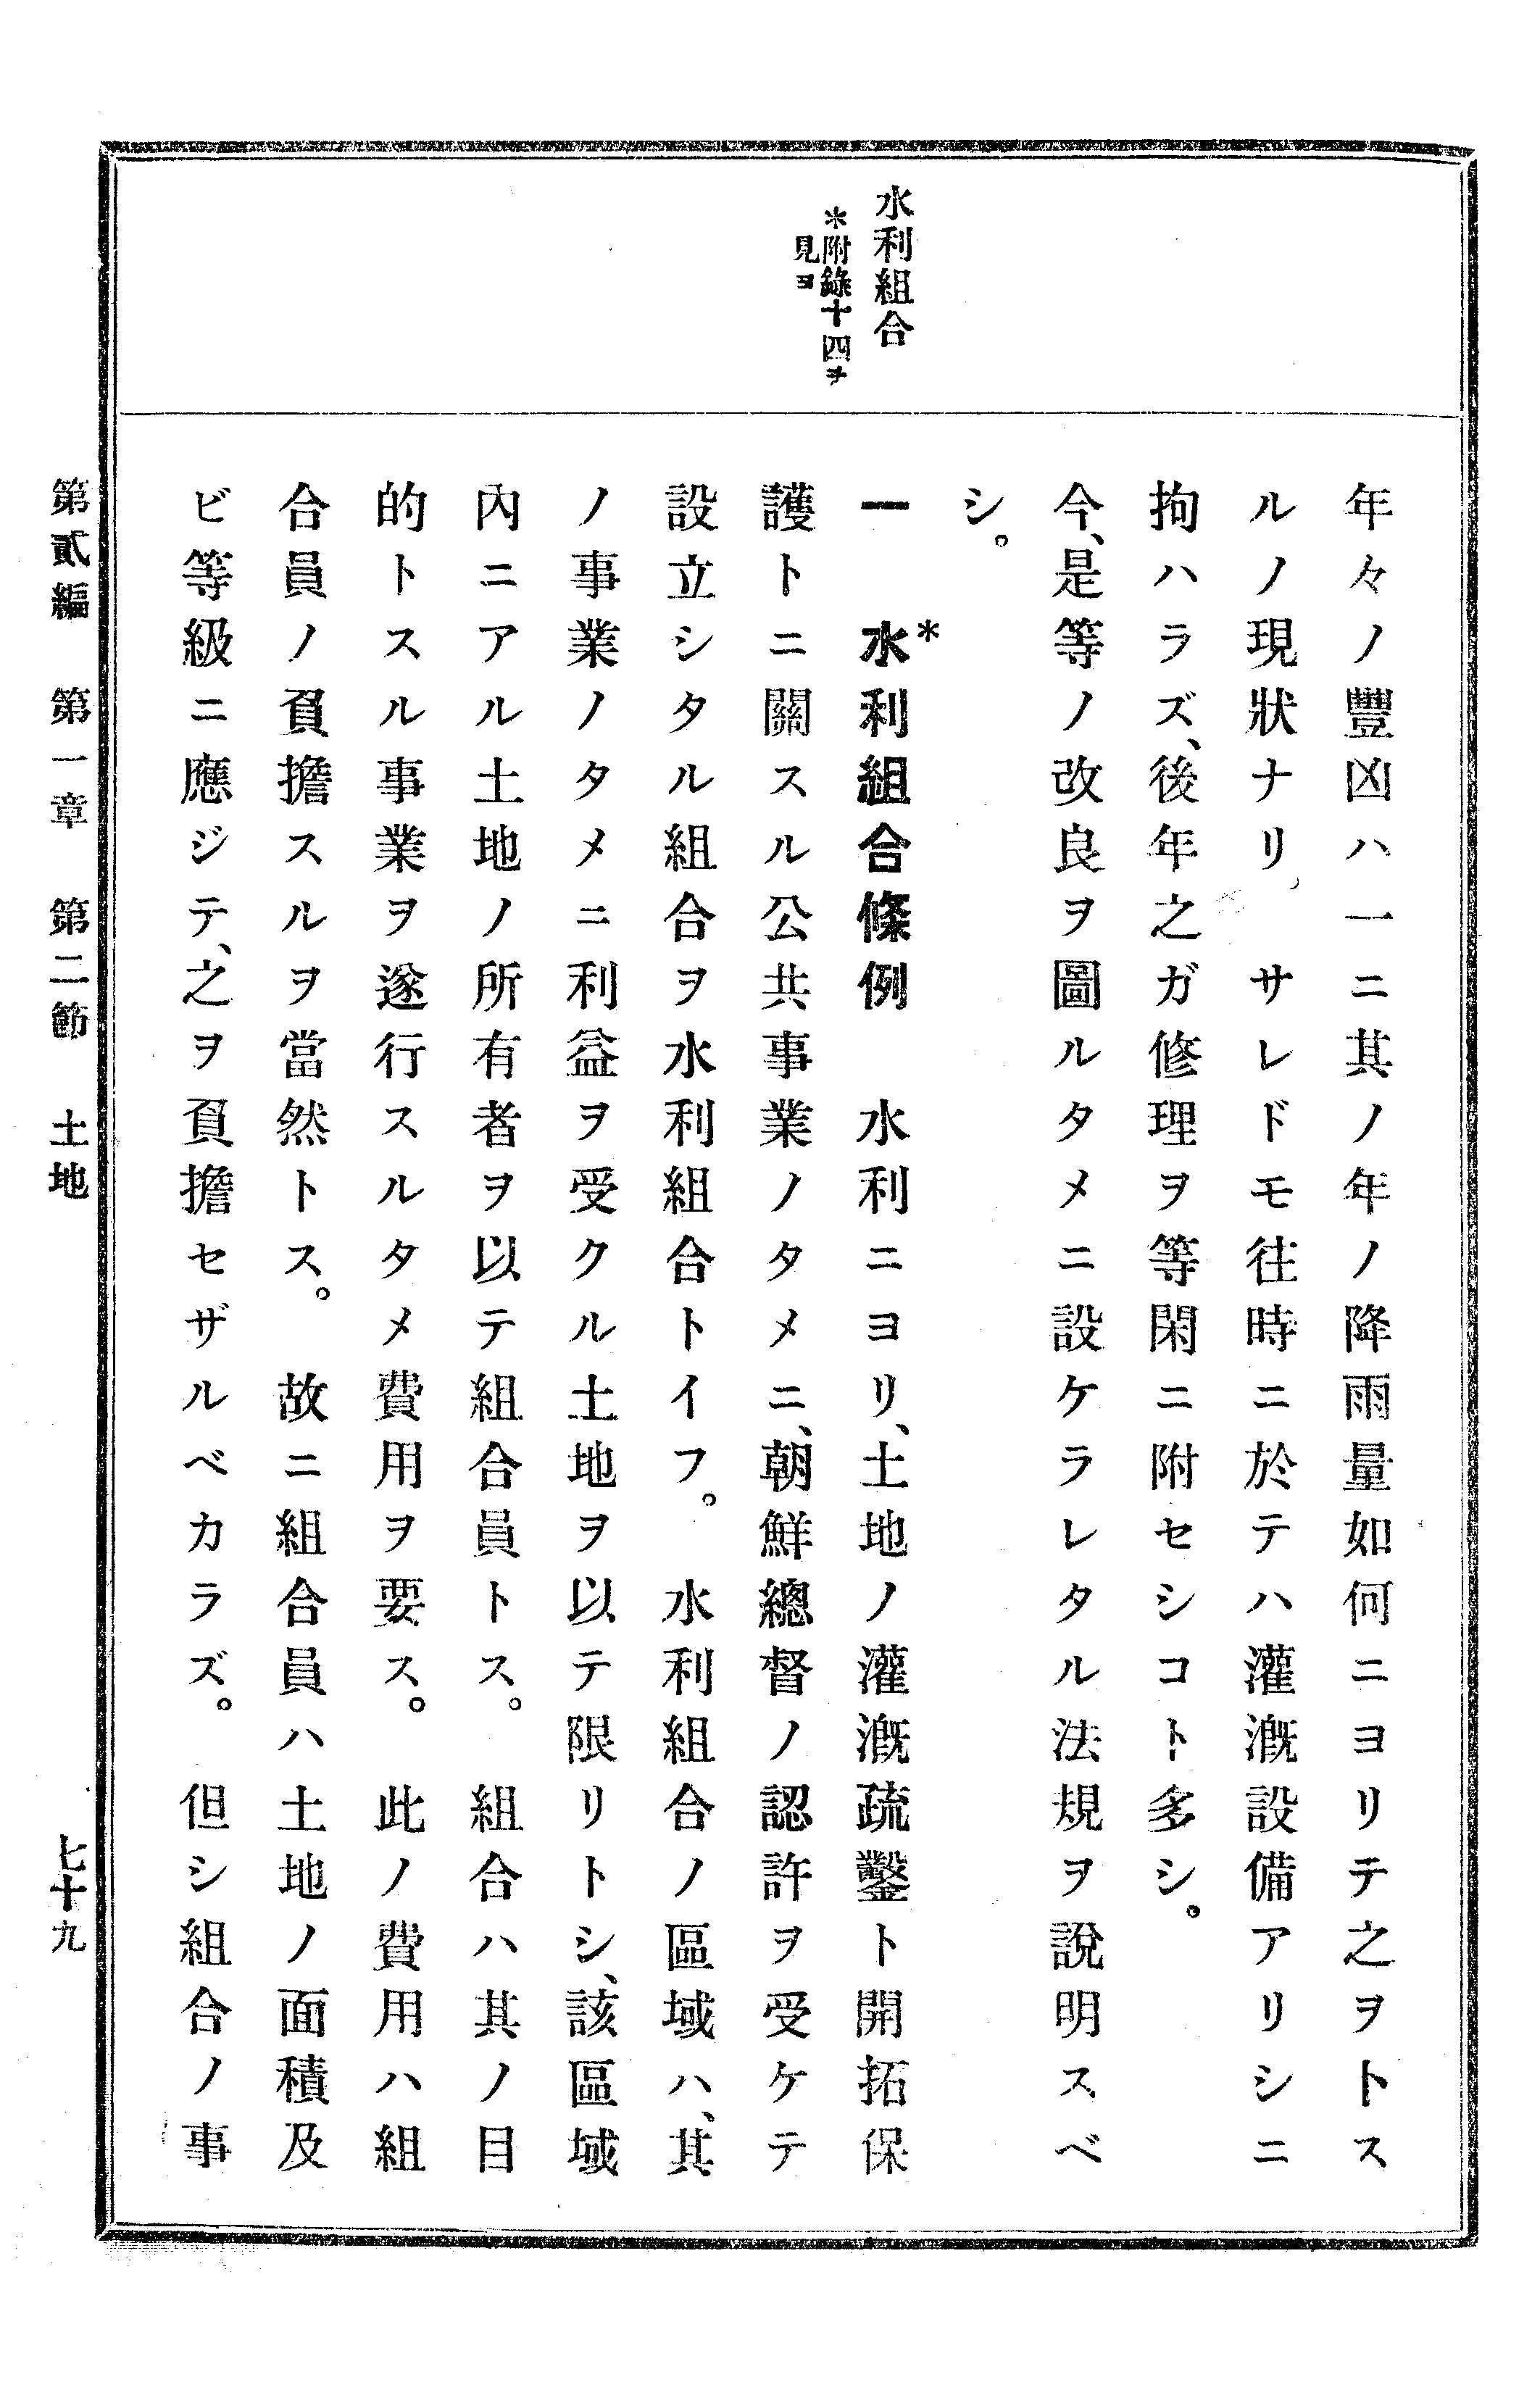 水利組合
＊附錄十四ヲ
見ヨ
年々ノ豐凶ハ一ニ其ノ年ノ降雨量如何ニヨリテ之ヲトス
ルノ現狀ナリ　サレドモ往時ニ於テハ灌漑設備アリシニ
拘ハラズ、後年之ガ修理ヲ等閑ニ附セシコト多シ。
今、是等ノ改良ヲ圖ルタメニ設ケラレタル法規ヲ說明スベ
シ。
一　水＊利組合條例　水利ニヨリ、土地ノ灌漑疏鑿ト開拓保
護トニ關スル公共事業ノタメニ、朝鮮總督ノ認許ヲ受ケテ
設立シタル組合ヲ水利組合トイフ。　水利組合ノ區域ハ、其
ノ事業ノタメニ利益ヲ受クル土地ヲ以テ限リトシ、該區域
內ニアル土地ノ所有者ヲ以テ組合員トス。　組合ハ其ノ目
的トスル事業ヲ遂行スルタメ費用ヲ要ス。　此ノ費用ハ組
合員ノ負擔スルヲ當然トス。　故ニ組合員ハ土地ノ面積及
ビ等級ニ應ジテ、之ヲ負擔セザルベカラズ。　但シ組合ノ事
第貳編　第一章　第二節　土地
七十九